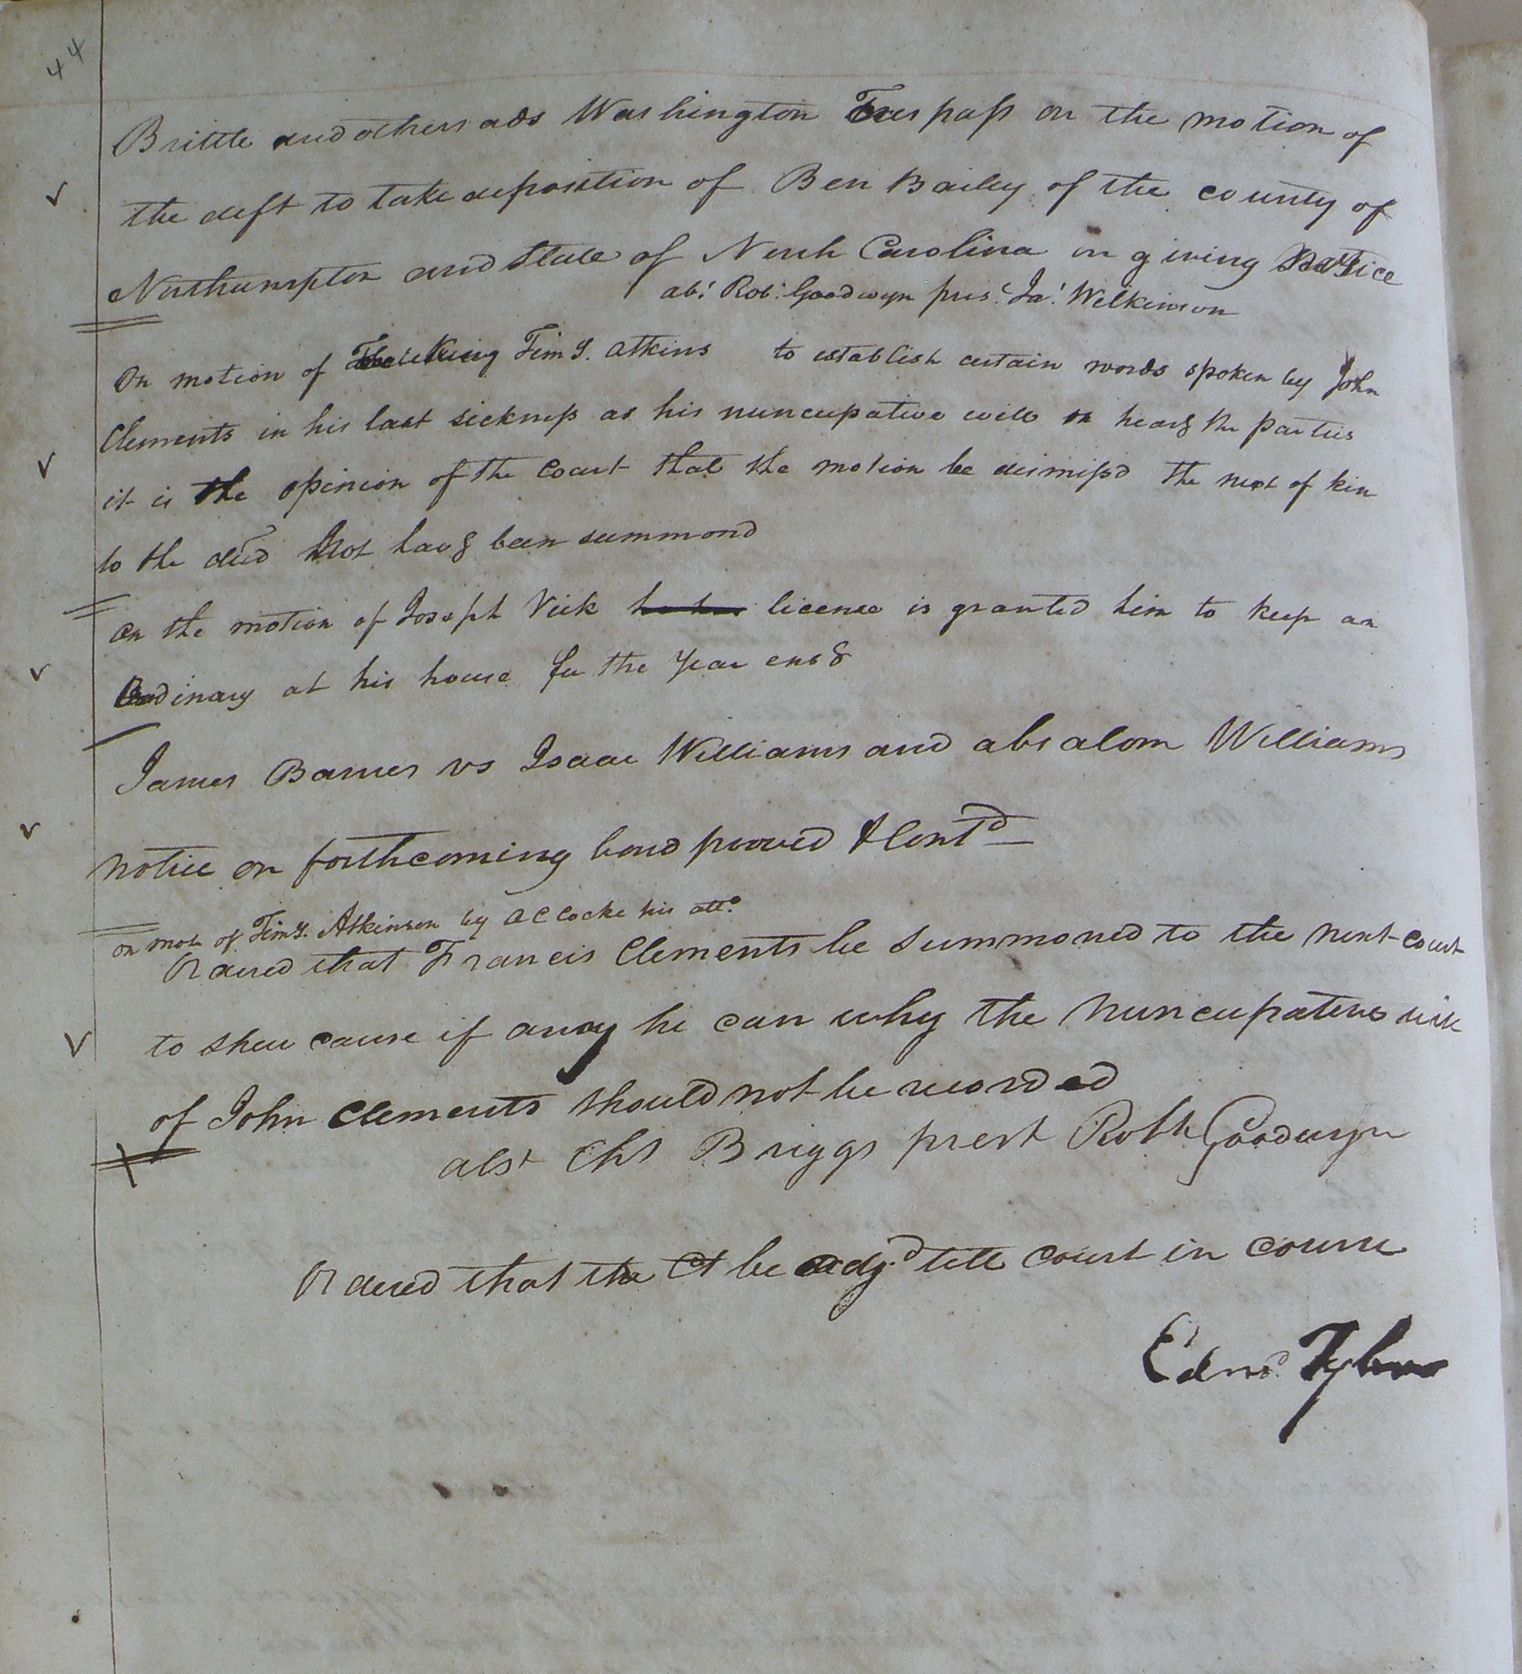 44
Brittle and others ads Washington Trespass on the motion of
the deft to take deposition of Ben Bailey of the county of
Northampton and State of North Carolina on giving Notice
abt. Robt. Goodwyn prest. Jas. Wilkinson
On motion of Timy. Atkins to establish certain words spoken by John
Clements in his last sickness as his nuncupative will on heang the parties
it is the opinion of the Court that the motion be dismissd the next of kin
to the decd not havg been summond
On the motion of Joseph Vick license is granted him to keep an
Ordinary at his house for the Year ensg
James Barnes vs Isaac Williams and absalom Williams
notice on forthcoming bond prooved & Contd
on moti of Timy. Atkinson by A C Cocke his atto.
Ordered that Francis Clements be Summoned to the next Court
to shew cause if anay he can why the Nuncupative will
of John Clements should not be recorded
abst Chs Briggs prest Robt Goodwyn
Ordered that the Ct be adjd. till Court in course
Edmd. Tyler